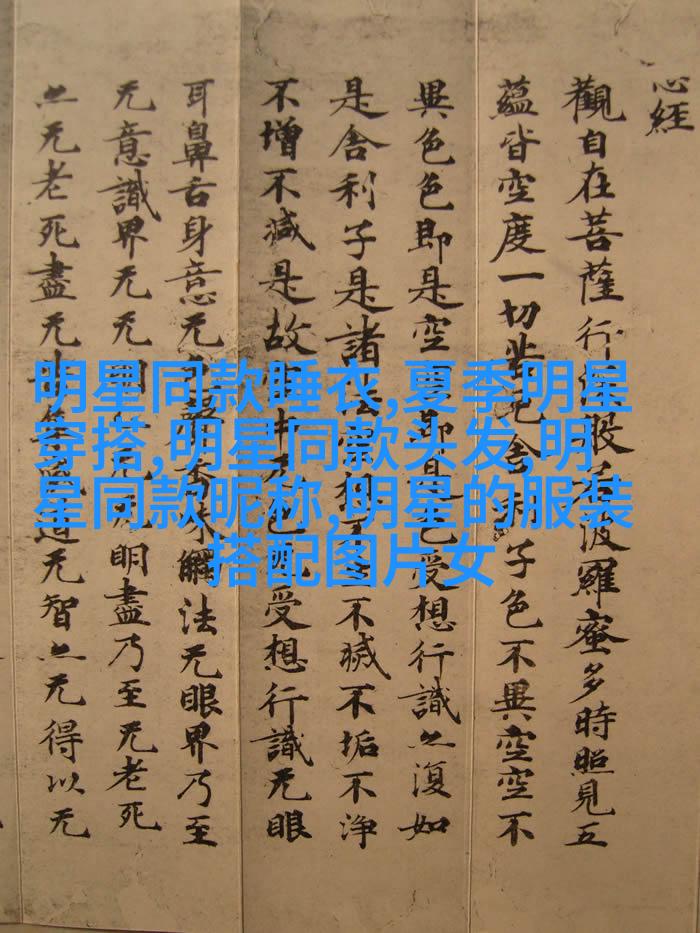 心經
觀自在菩薩行深般若波羅蜜多時照見五
蘊皆空度一切苦厄舍利子色不異空空不
異色色即是空空即是色受想行識亦復如
是舍利子是諸法空相不生不滅不垢不淨
不增不減是故空中无色无受想行識无眼
耳鼻舌身意无色聲香味觸法无眼界乃至
无意識界无无明亦无无明盡乃至无老死
亦无老死盡无苦集滅道无智亦无得以无
明星同款睡衣,夏季明星
穿搭,明星同款头发,明
星同款昵称,明星的服装
搭配图片女